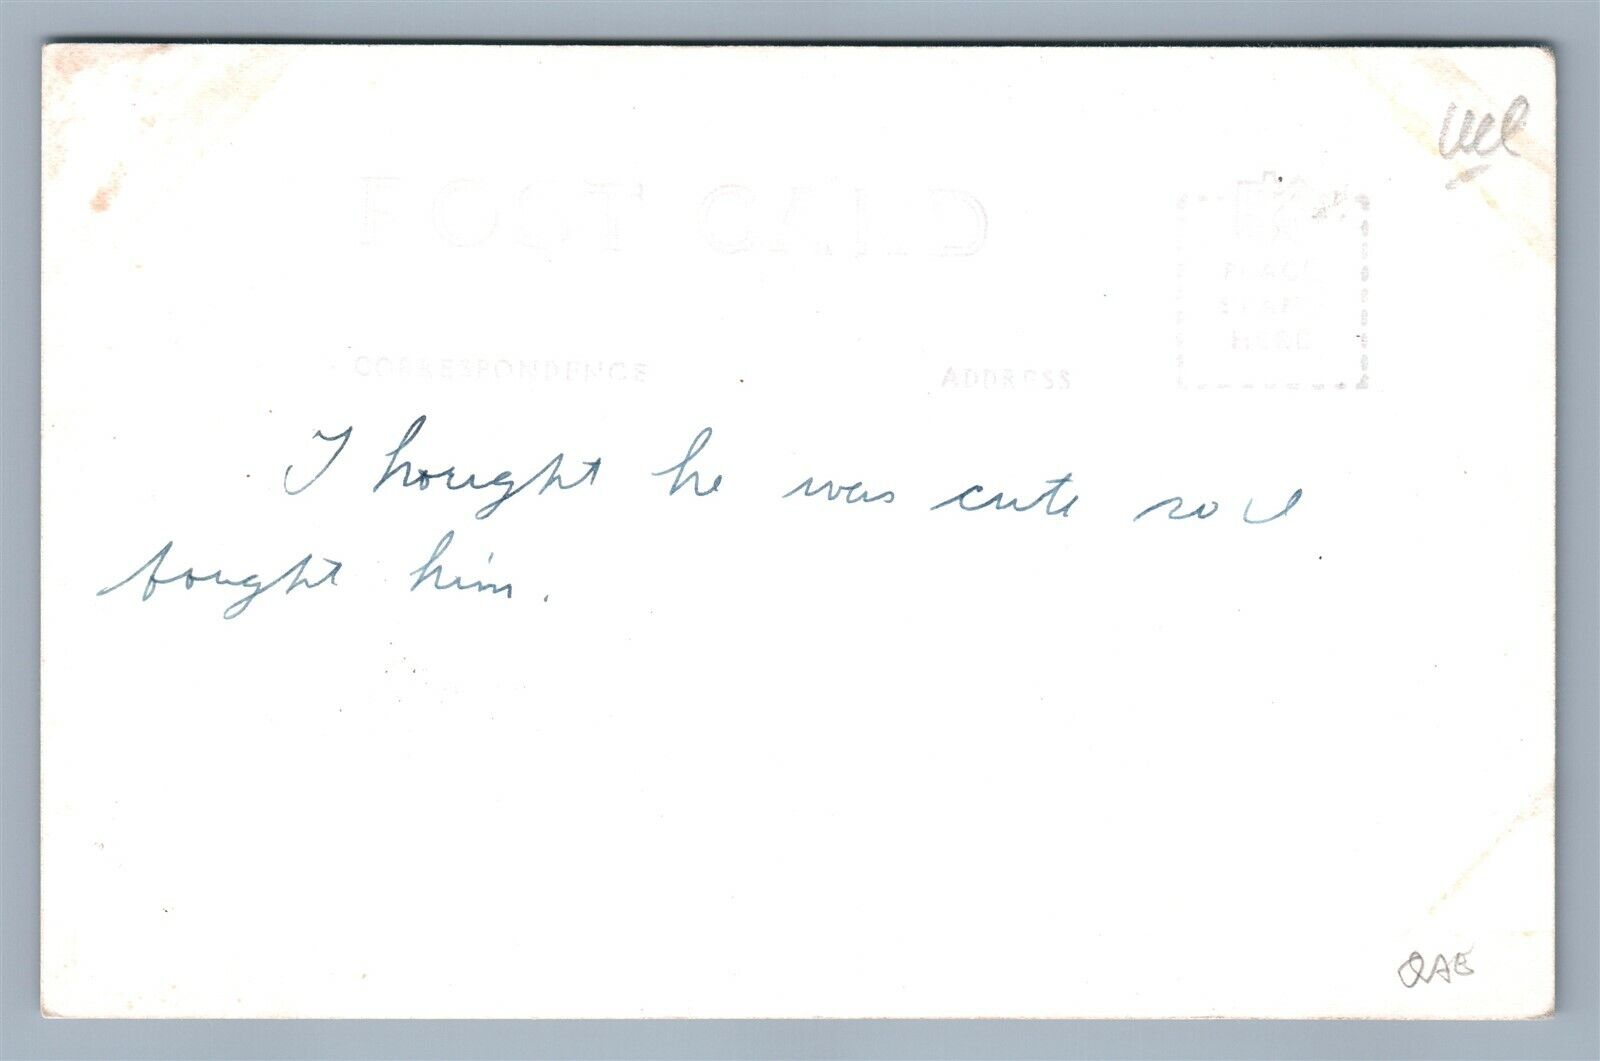 POST CARD
PLACE
STAMP
HERE
CORRESPONDENCE ADDRESS
I hought he was cute so I
bought him.
QAE